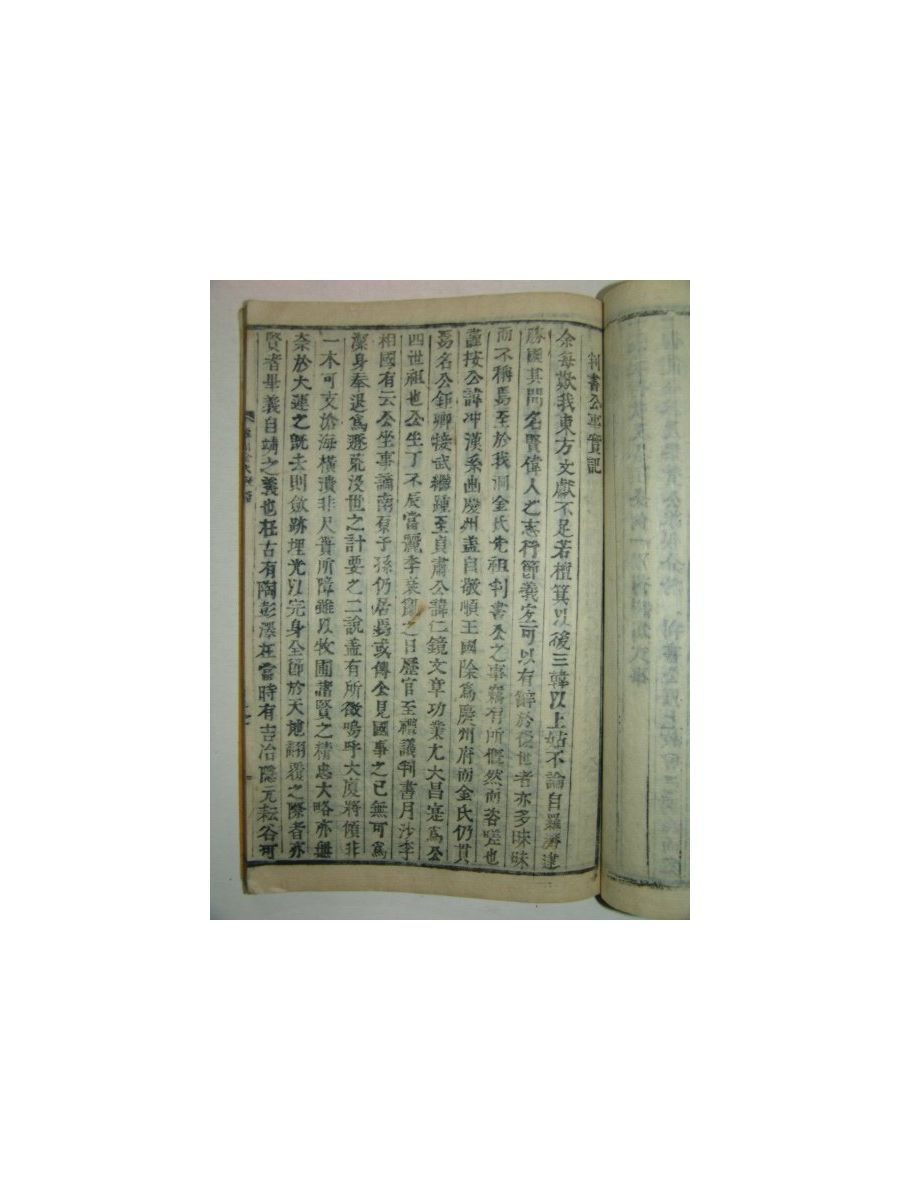 判書公事實記
余每歎我東方文獻不足若檀箕以後三韓以上姑不論自羅濟逮
勝國其間名賢偉人之志行節義宜可以有辭於後世者亦多昧昧
而不稱焉至於我洞金氏先祖判書公之事竊有所慨然而咨嗟也
謹按公諱冲漢系曲慶州盖自敬順王國除爲慶州府而金氏仍貫
焉名公鉅卿接武繼踵至貞肅公諱仁鏡文章功業尤大昌寔爲公
四世祖也公生丁不辰當麗季衰亂之日歷官至禮議判書月沙李
相國有云公坐事謫南原子孫仍居焉或傳公見國事之已無可爲
潔身奉退爲遯荒沒世之計要之二說盖有所徵嗚呼大廈將傾非
一木可支滄海橫潰非尺簣所障雖以牧圃諸賢之精忠大略亦無
奈於大運之旣去則斂跡埋光以完身全節於天地翻覆之際者亦
賢者畢義自靖之義也在古有陶彭澤在當時有吉冶隱元耘谷可